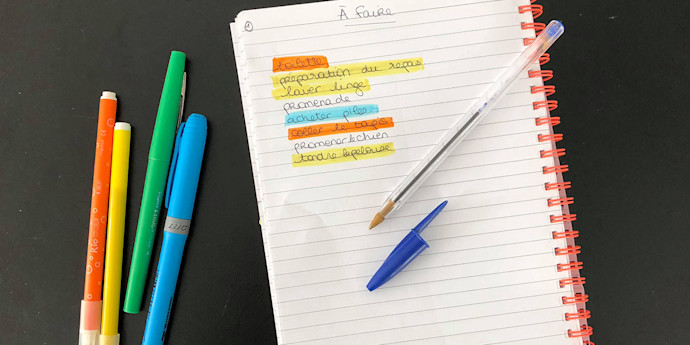 À Faire
toilette
préparation du repas
laver linge
promenade
acheter piles
le
promener le chien
tondre la pelouse